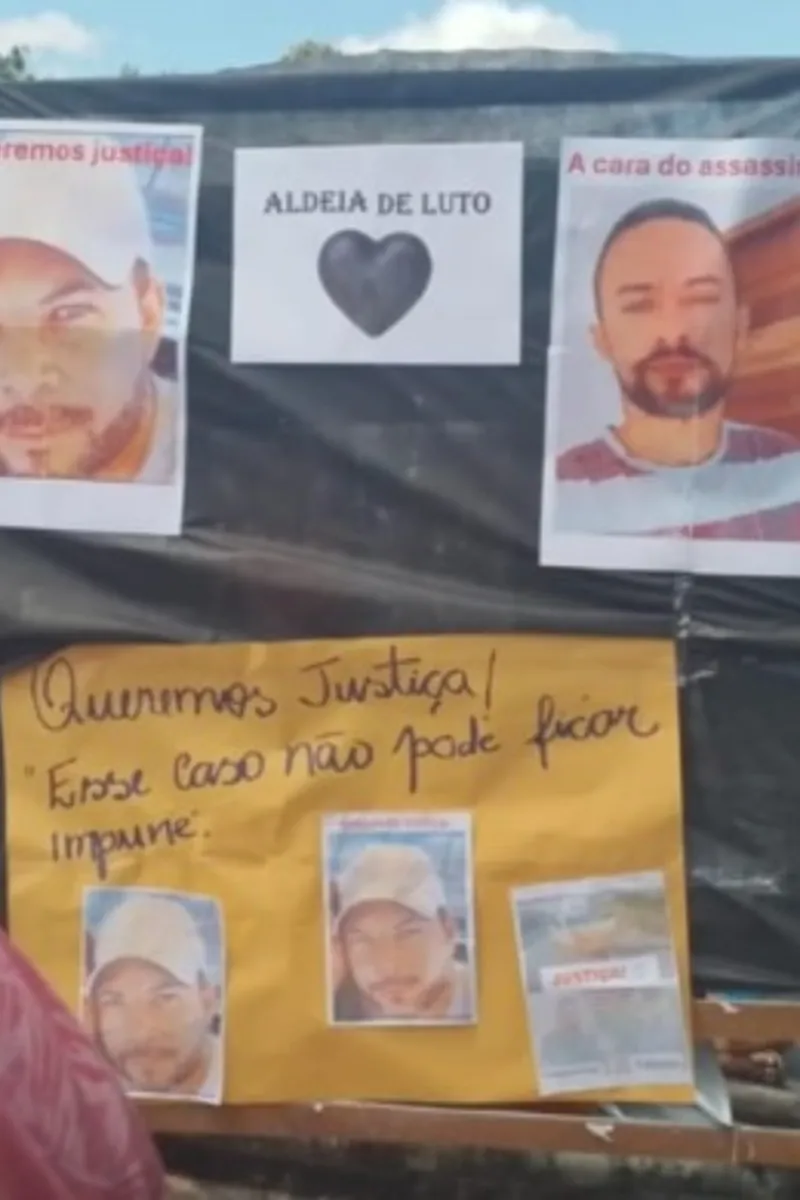 remos justiça!
ALDEIA DE LUTO
A cara do assassi
Queremos Justiça!
"Esse caso não pode ficar
impune".
JUSTIÇA!